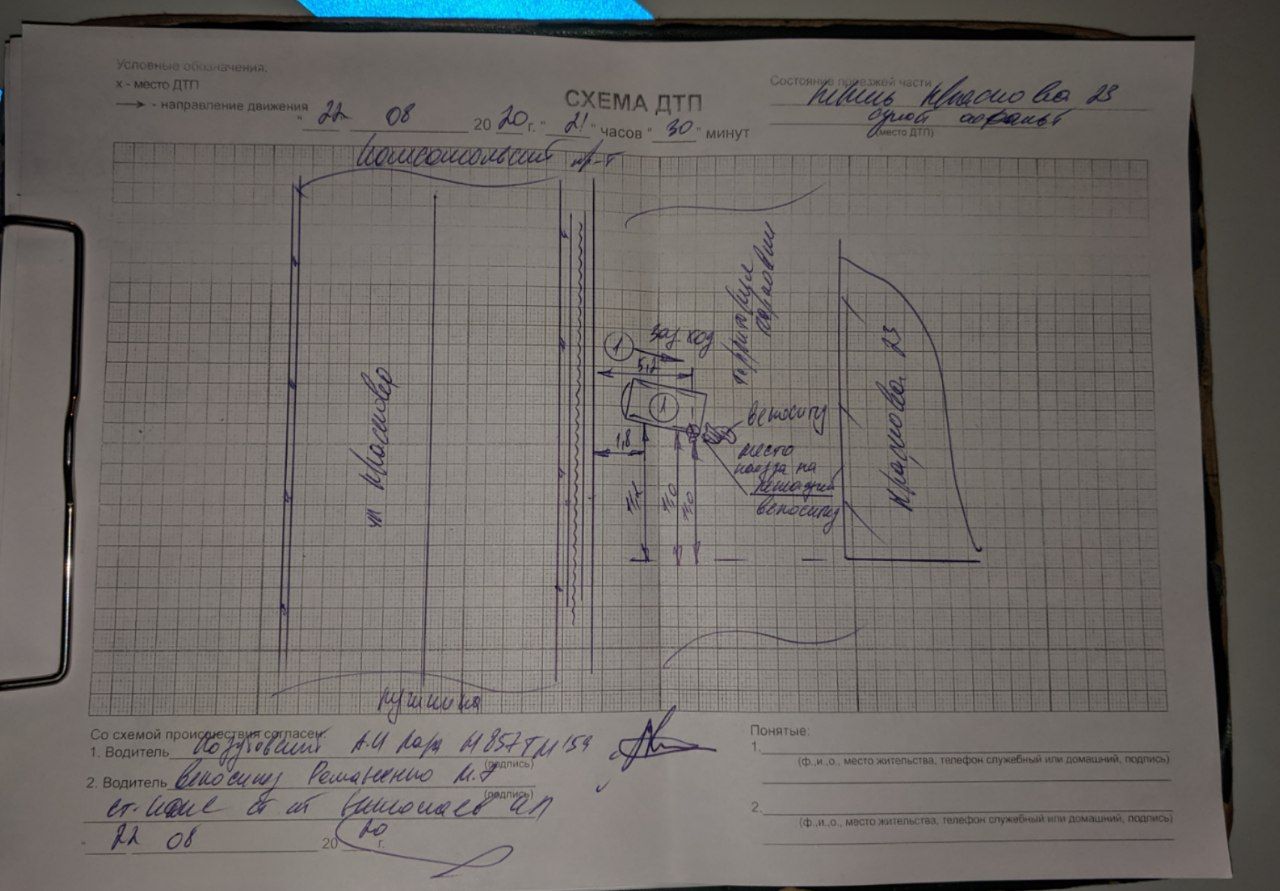 Условные обозначения.
х - место ДТП
- направление движения
СХЕМА ДТП
Состояние проезжей части
Краснова 23
сухой асфальт
(место ДТП)
" 22 08 20 20 г. " 21 " часов " 30 " минут
Комсомольский пр-т
ул Краснова
1 зад ход
5,2
1
1,8
7,0
7,0
территория парковки
велосипед
место наезда на
велосипед
Краснова 23
Пушкина
Со схемой происшествия согласен:
1. Водитель А.И Лада М857ТМ159
(подпись)
2. Водитель велосипед Романенко М.
(подпись)
22 08 20 20 г.
Понятые:
1.
(ф.,и.,о., место жительства, телефон служебный или домашний, подпись)
2.
(ф.,и.,о., место жительства, телефон служебный или домашний, подпись)